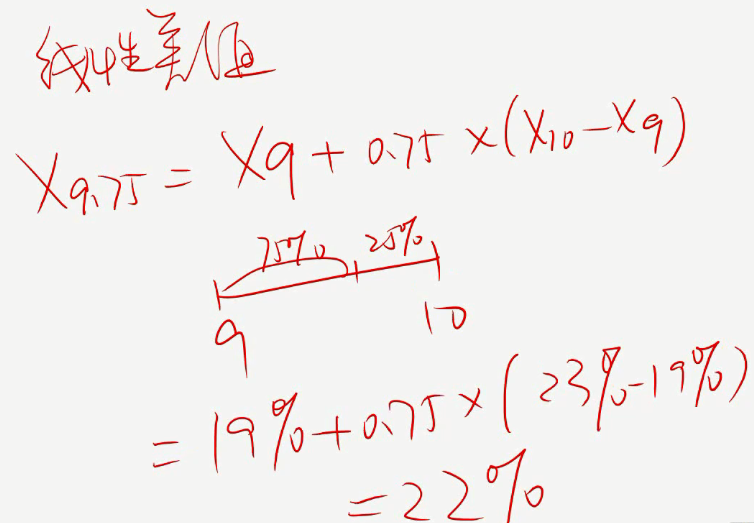 线性差值
X9.75 = X9 + 0.75 × (X10 - X9)
75% 25%
9 10
= 19% + 0.75 × (23% - 19%)
= 22%